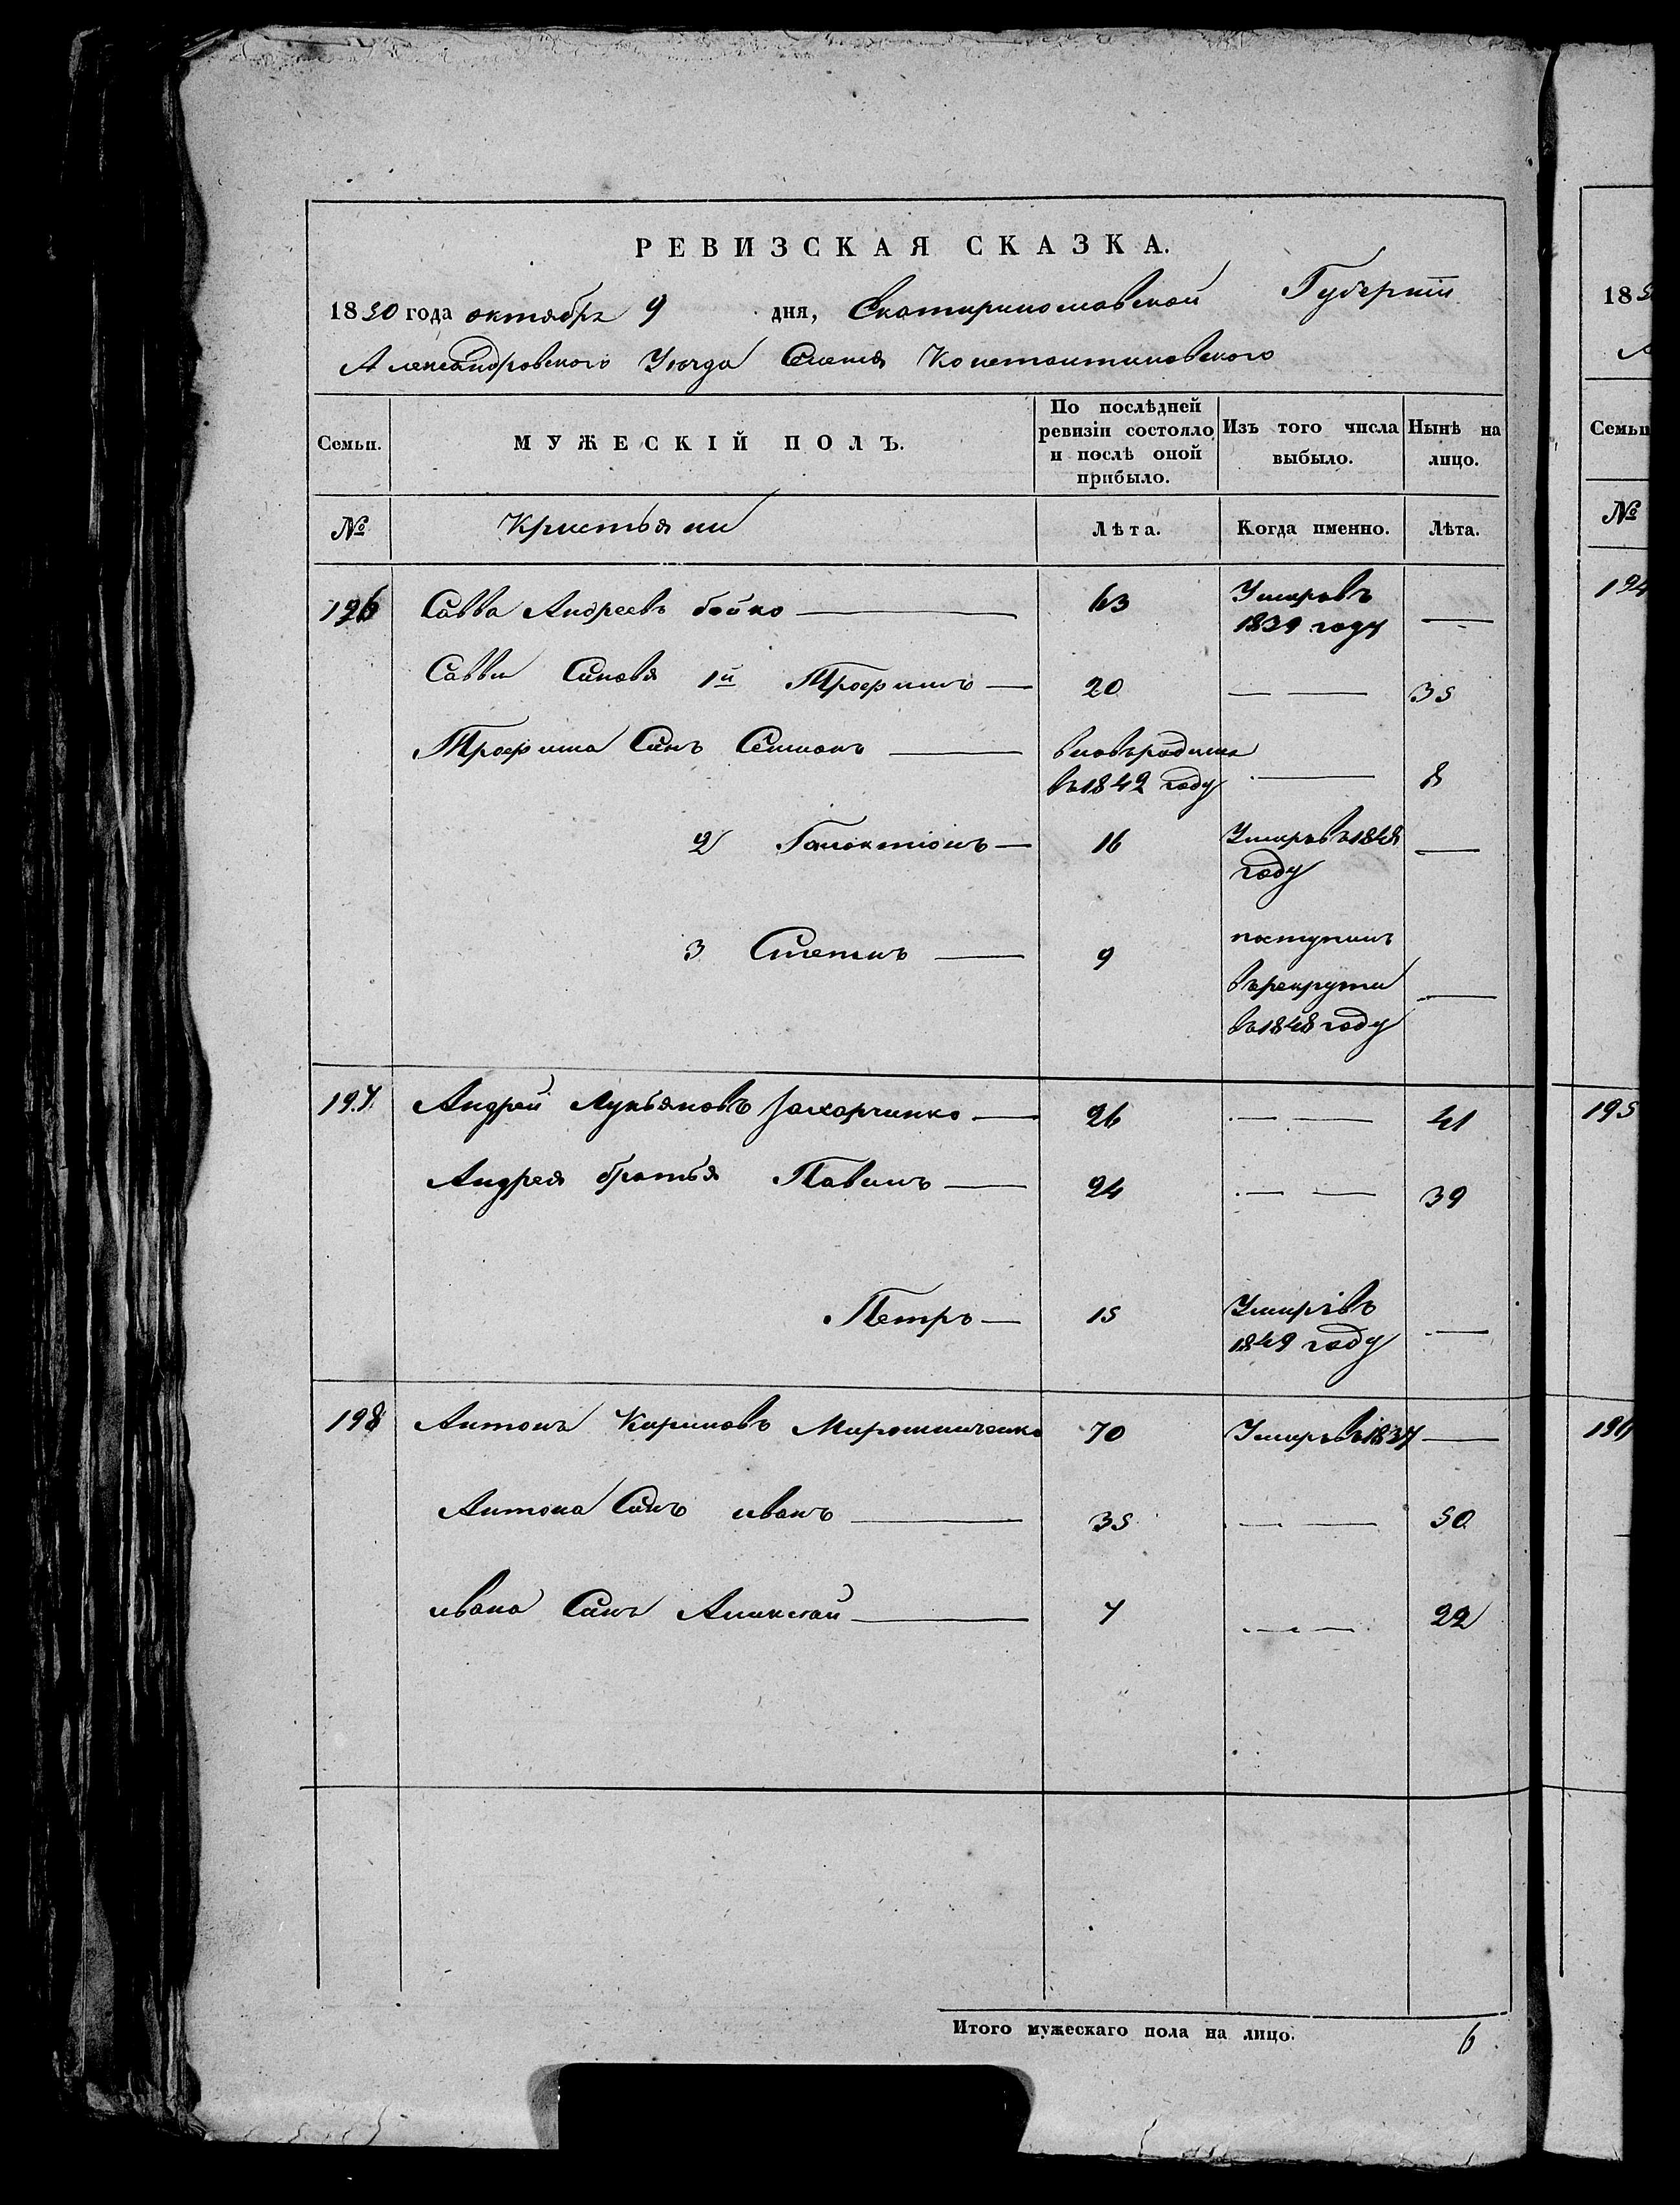 РЕВИЗСКАЯ СКАЗКА.
1850 года октября 9 дня, Екатеринославской Губернии
Александровского Уезда Селения Константиновского
Семьи.
МУЖЕСКІЙ ПОЛЪ.
По послѣдней ревизіи состояло и послѣ оной прибыло.
Изъ того числа выбыло.
Нынѣ на лицо.
№
Кристьяни
Лѣта.
Когда именно.
Лѣта.
196 Савва Андреевъ бойко — 63 Умеръ въ 1839 году —
Савви Синовя 1й Трофимъ — 20 — — 35
Трофима Синъ Семионъ — вновь родился въ 1842 году — 8
2 Галактіонъ — 16 Умеръ въ 1848 году —
3 Степанъ — 9 поступилъ въ рекрути въ 1848 году —
197 Андрей Лукьяновъ Захарченко — 26 — — 41
Андрея братья Павилъ — 24 — — 39
Петръ — 15 Умеръ въ 1849 году —
198 Антонъ Кириловъ Мирошниченко 70 Умеръ въ 1837 —
Антона Синъ иванъ — 35 — — 50
ивана Синъ Аликсей — 7 — — 22
Итого мужескаго пола на лицо. 6
18
Семьи
№
194
195
196